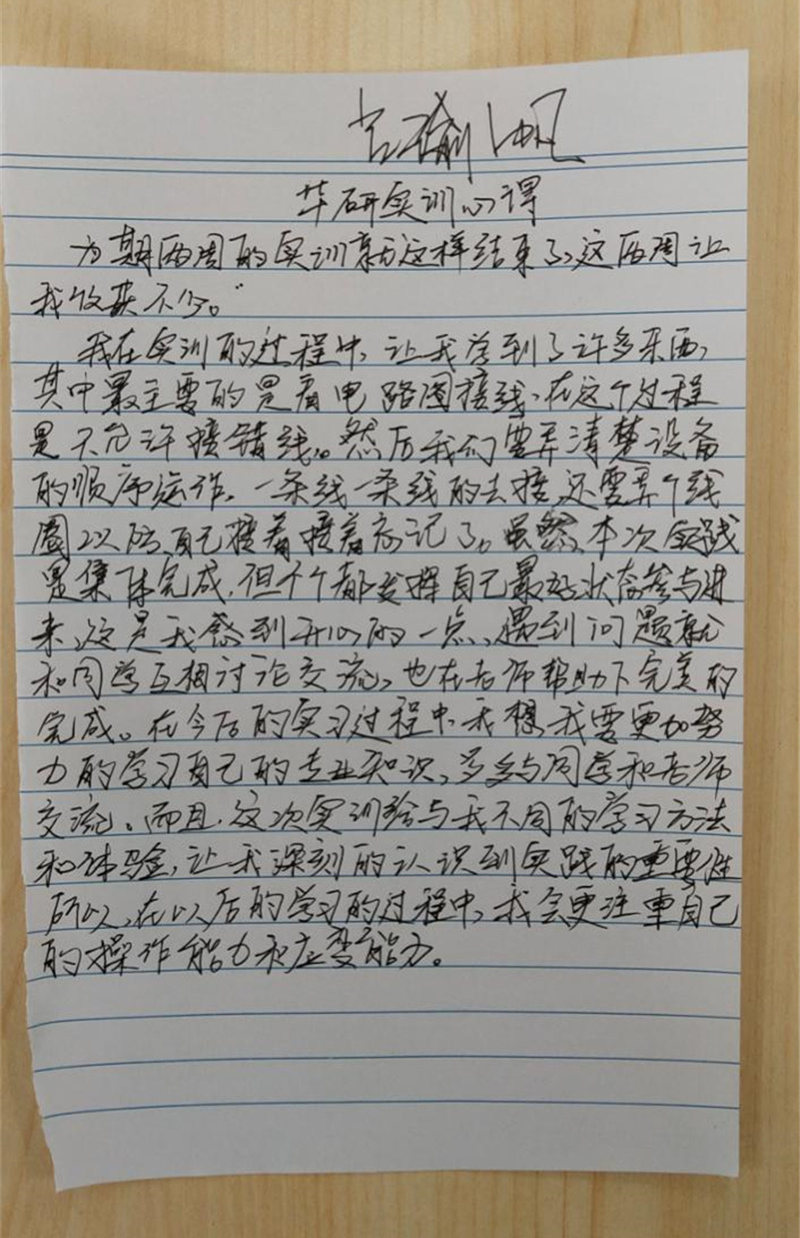 华研实训心得
为期两周的实训就这样结束了,这两周让
我收获不少。
我在实训的过程中,让我学到了许多东西,
其中最主要的是看电路图接线,在这个过程
是不允许接错线。然后我们要弄清楚设备
的顺序运作,一条线一条线的去接,还要弄个线
圈以防自己接着接着忘记了。虽然本次实践
是集体完成,但个个都发挥自己最好状态参与进
来,这是我感到开心的一点,遇到问题就
和同学互相讨论交流,也在老师帮助下完美的
完成。在今后的实习过程中,我想我要更加努
力的学习自己的专业知识,多多与同学和老师
交流,而且,这次实训给与我不同的学习方法
和体验,让我深刻的认识到实践的重要性
所以,在以后的学习的过程中,我会更注重自己
的操作能力和应变能力。